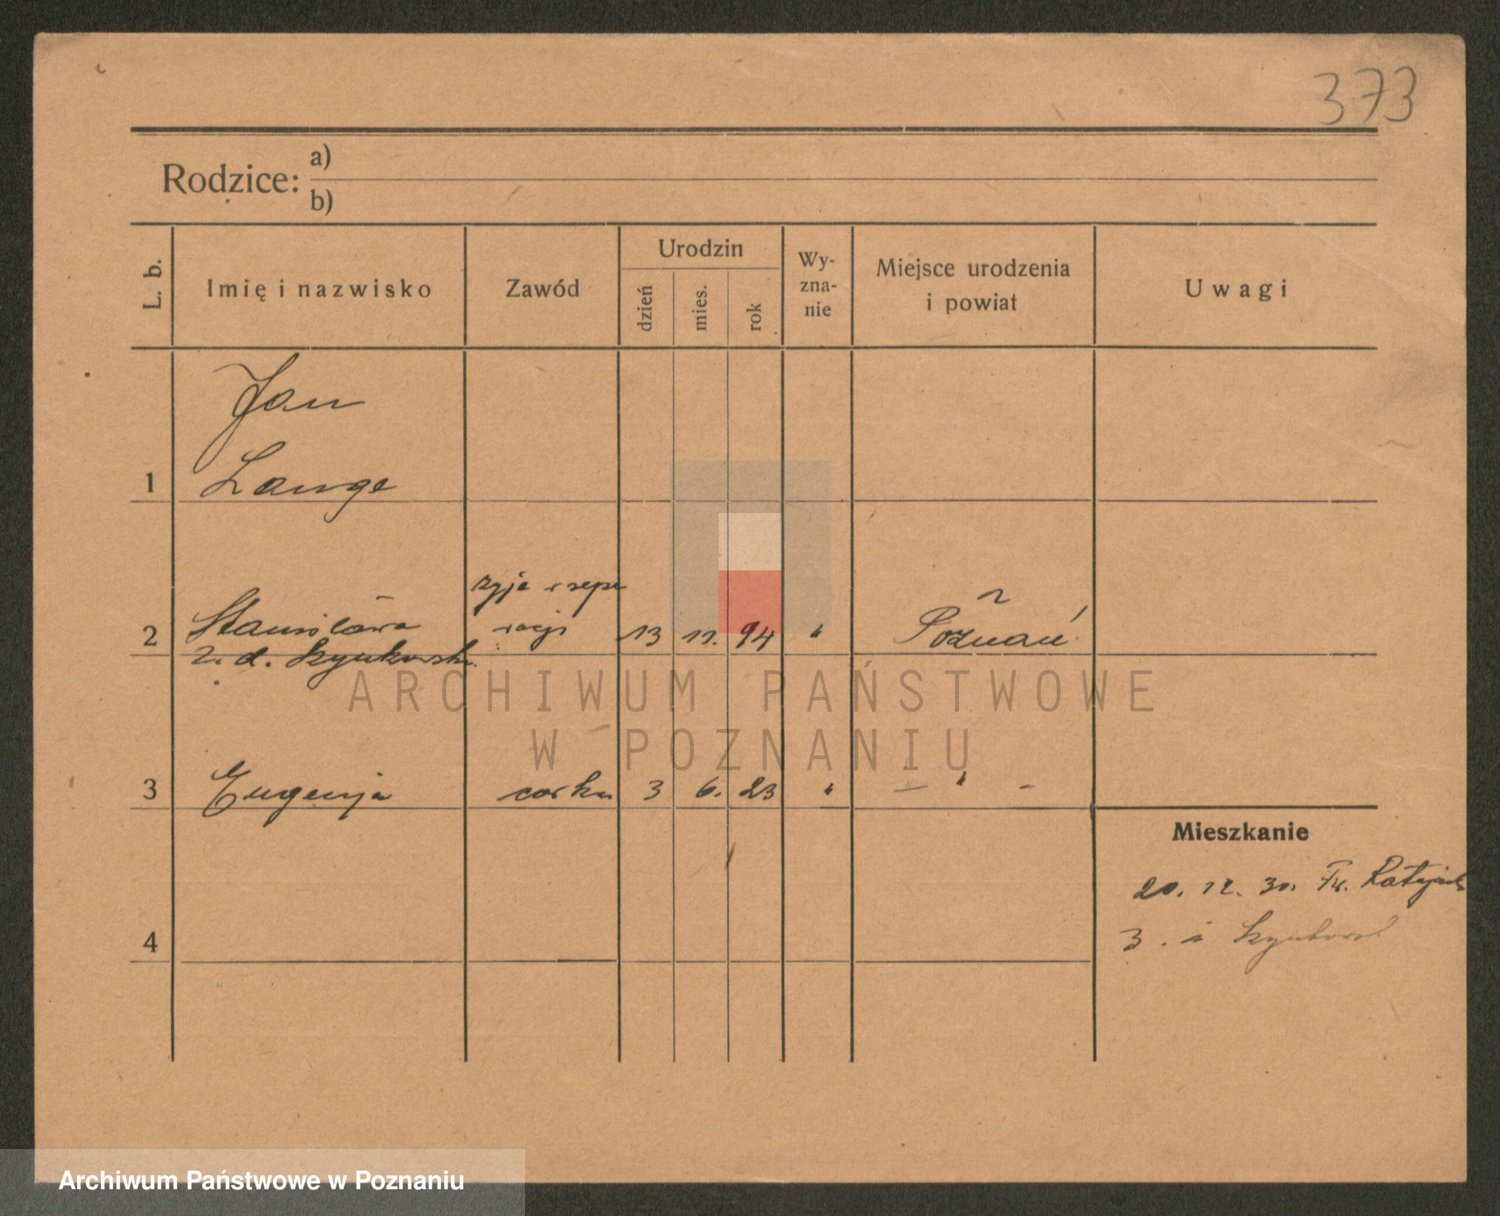 373
Rodzice: a)
b)
L. b.
Imię i nazwisko
Zawód
Urodzin
dzień
mies.
rok
Wy-
zna-
nie
Miejsce urodzenia
i powiat
Uwagi
Jan
1 Lange
żyje w sepe
2 Stanisława racji 13 11. 94 " Poznań
z. d.
3 Eugenja corka 3 6. 23 " – " –
Mieszkanie
20. 12. 30. Fr. Ratajczaka
4
3. u
ARCHIWUM PAŃSTWOWE
W POZNANIU
Archiwum Państwowe w Poznaniu